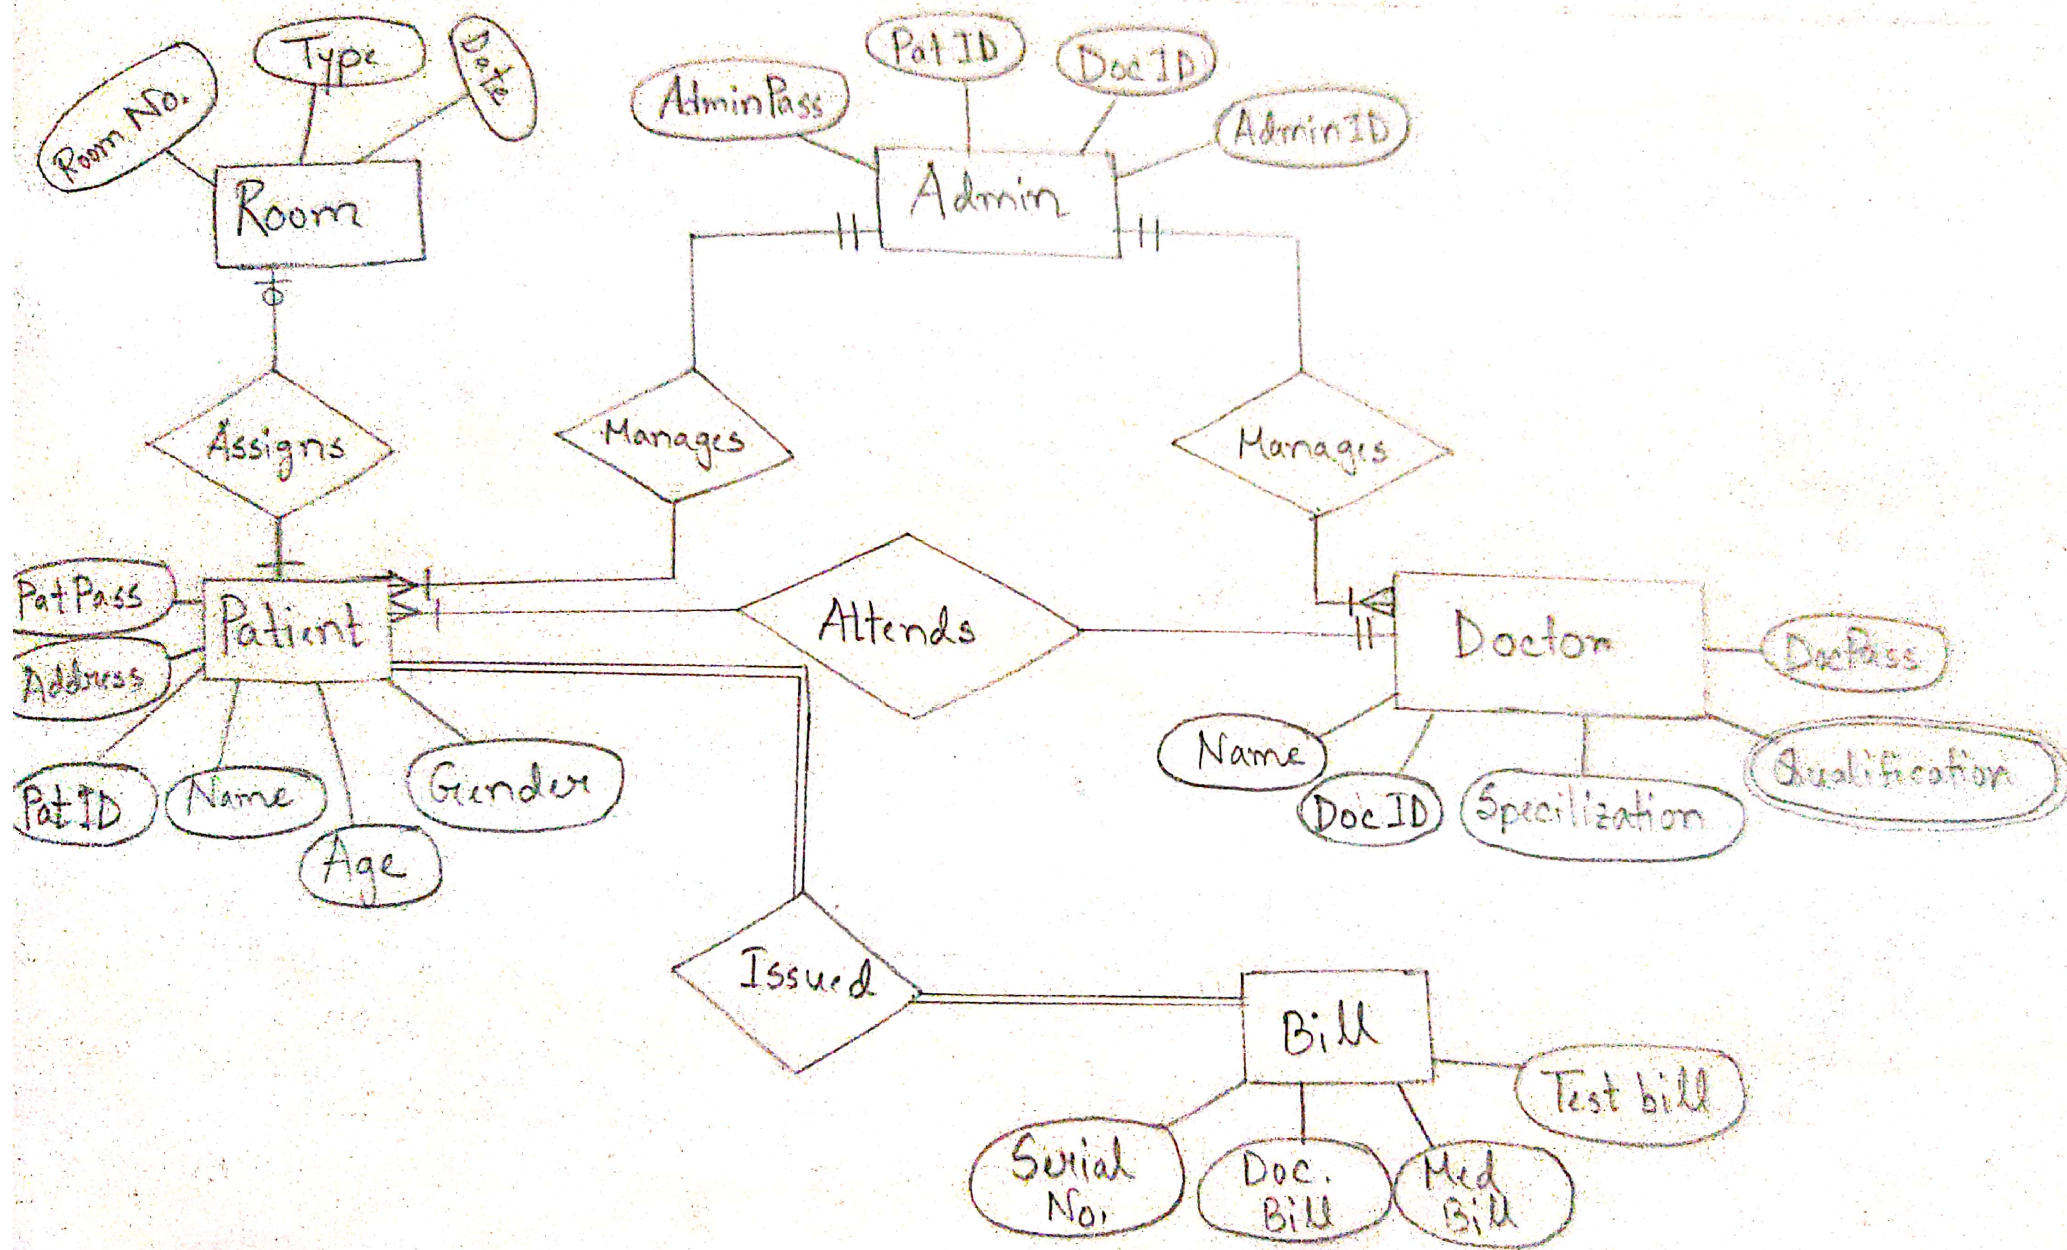 Room No.
Type
Date
Room
AdminPass
Pat ID
Doc ID
AdminID
Admin
Assigns
Manages
Manages
PatPass
Address
Patient
Attends
Doctor
DocPass
Pat ID
Name
Age
Gender
Name
Doc ID
Specilization
Qualification
Issued
Bill
Serial
No.
Doc.
Bill
Med
Bill
Test bill